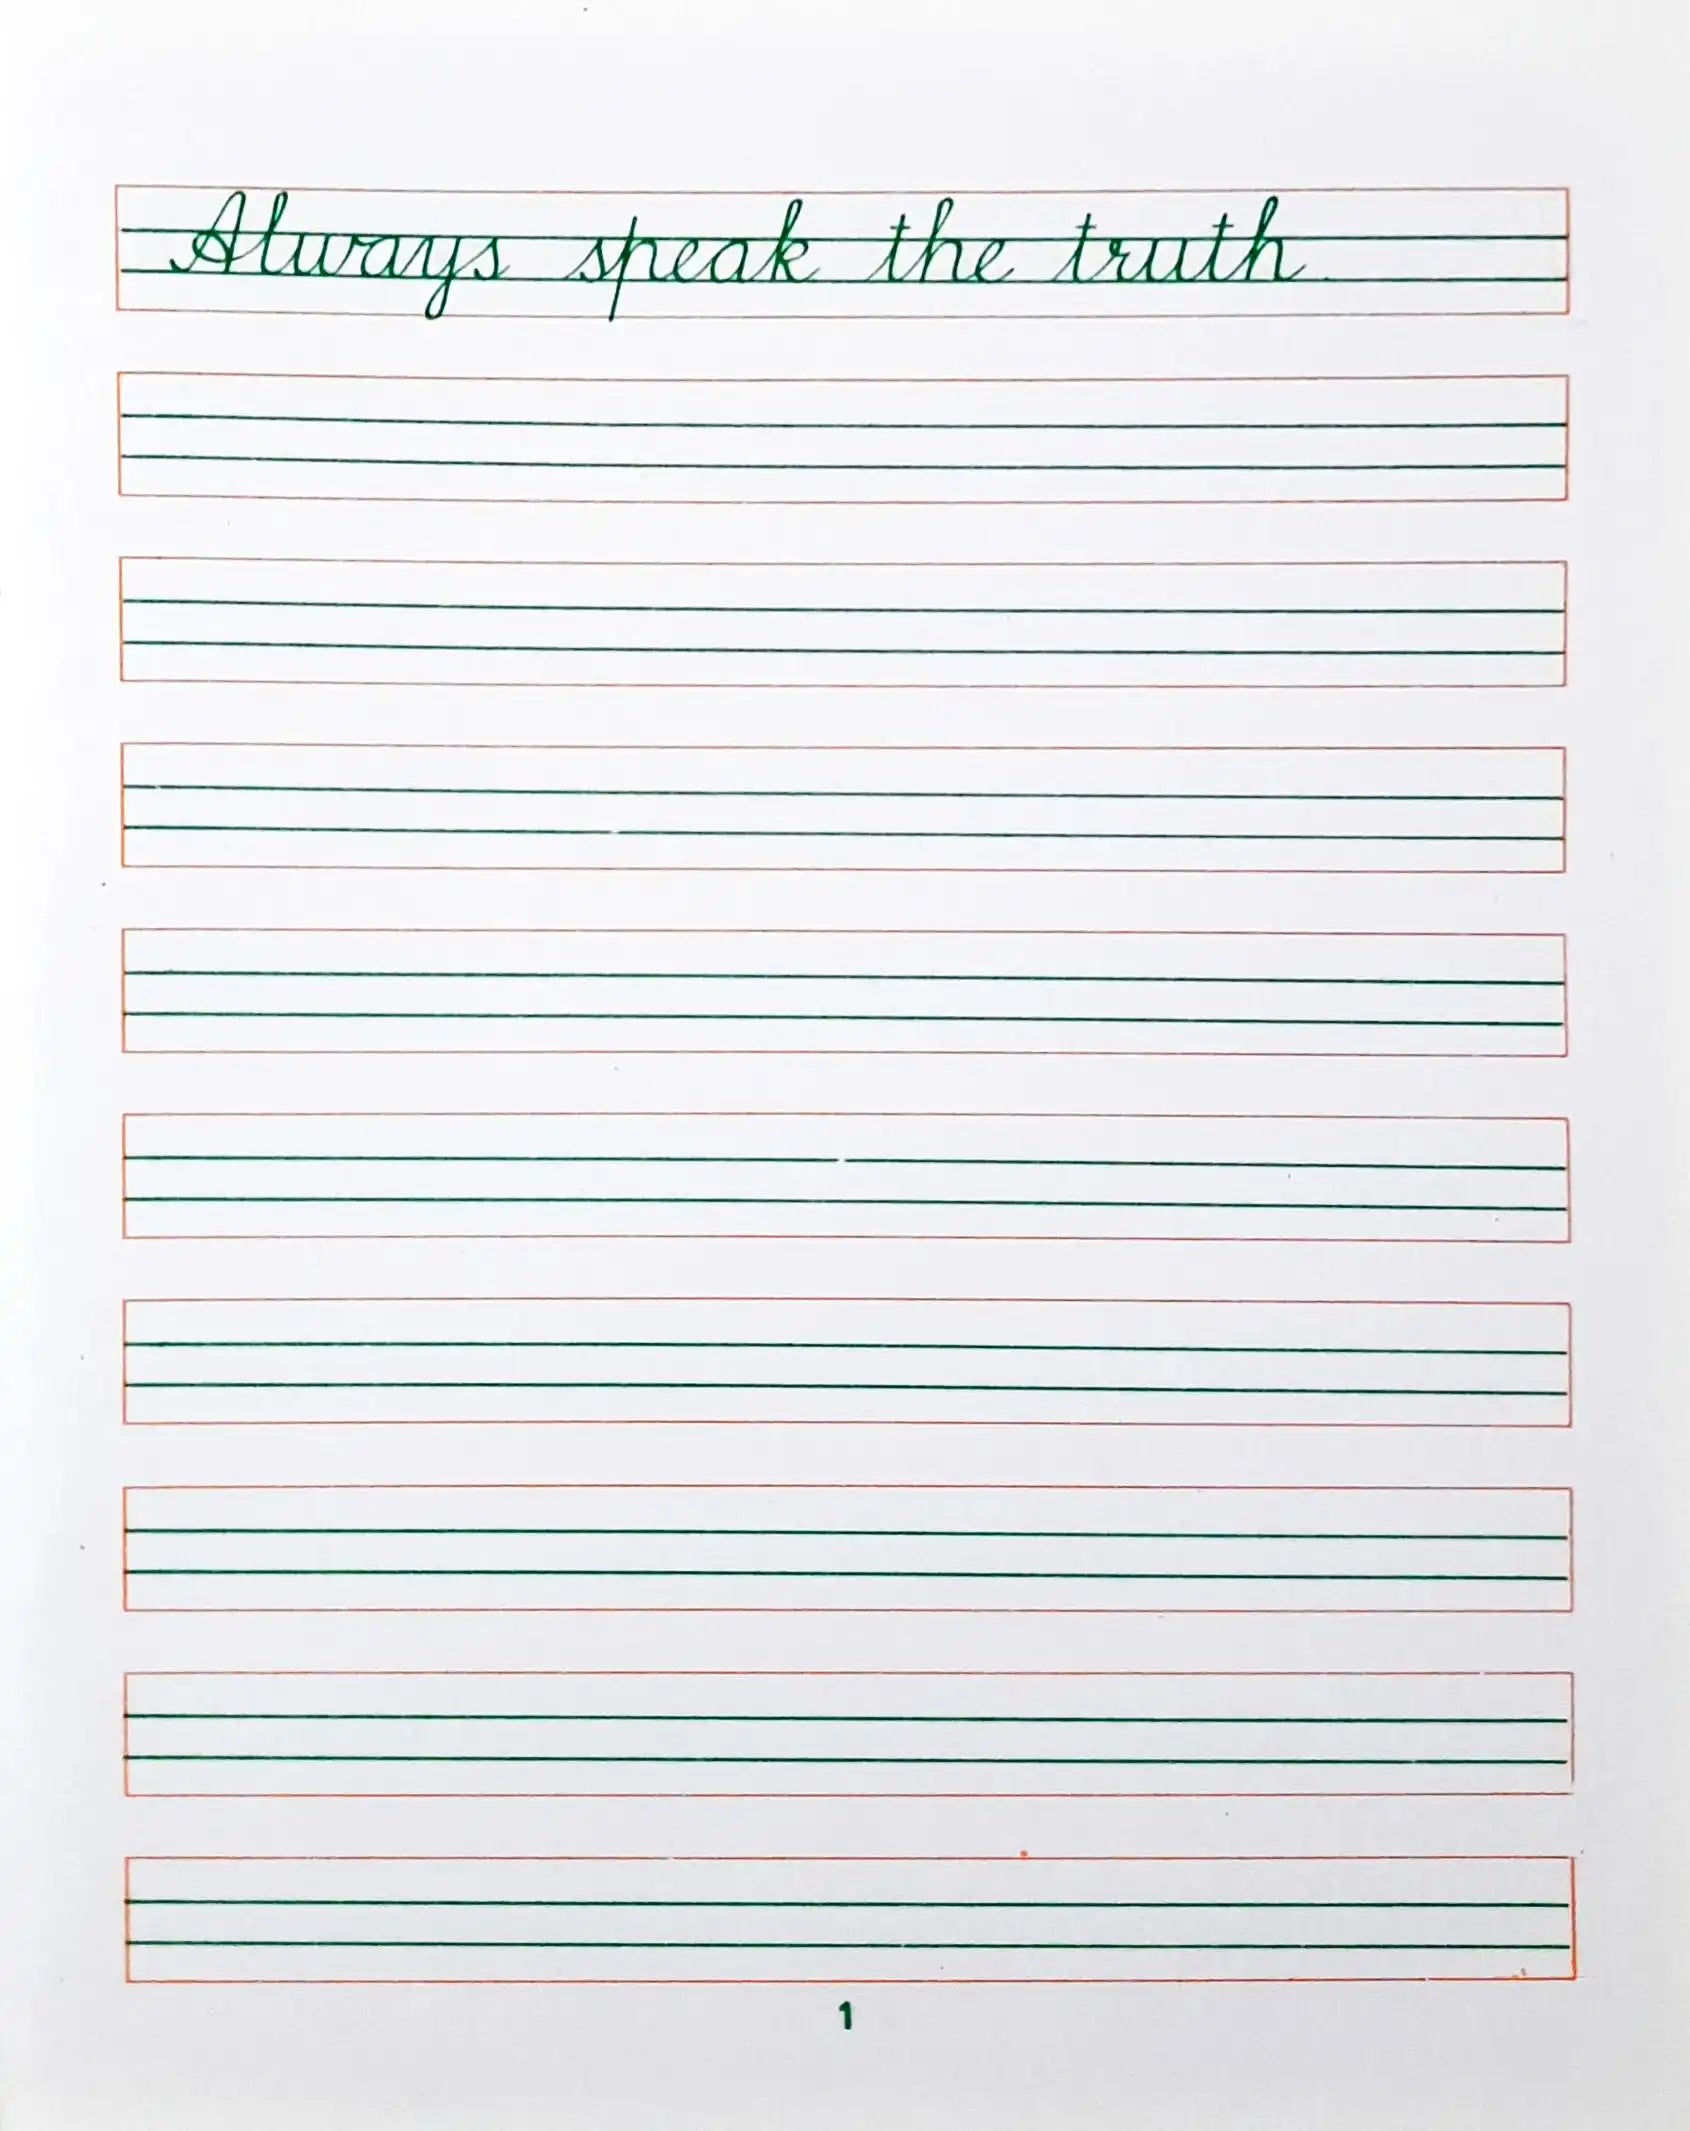 Always speak the truth
1